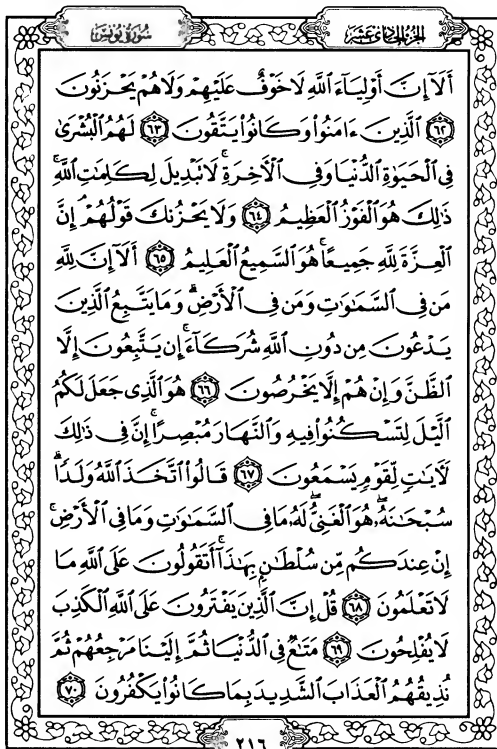 سُورَةُ يُونُسَ
الجُزْءُ الحَادِي عَشَرَ
أَلَآ إِنَّ أَوْلِيَآءَ ٱللَّهِ لَا خَوْفٌ عَلَيْهِمْ وَلَا هُمْ يَحْزَنُونَ
٦٢ ٱلَّذِينَ ءَامَنُوا۟ وَكَانُوا۟ يَتَّقُونَ ٦٣ لَهُمُ ٱلْبُشْرَىٰ
فِى ٱلْحَيَوٰةِ ٱلدُّنْيَا وَفِى ٱلْـَٔاخِرَةِ ۚ لَا تَبْدِيلَ لِكَلِمَـٰتِ ٱللَّهِ ۚ
ذَٰلِكَ هُوَ ٱلْفَوْزُ ٱلْعَظِيمُ ٦٤ وَلَا يَحْزُنكَ قَوْلُهُمْ ۘ إِنَّ
ٱلْعِزَّةَ لِلَّهِ جَمِيعًا ۚ هُوَ ٱلسَّمِيعُ ٱلْعَلِيمُ ٦٥ أَلَآ إِنَّ لِلَّهِ
مَن فِى ٱلسَّمَـٰوَٰتِ وَمَن فِى ٱلْأَرْضِ ۗ وَمَا يَتَّبِعُ ٱلَّذِينَ
يَدْعُونَ مِن دُونِ ٱللَّهِ شُرَكَآءَ ۚ إِن يَتَّبِعُونَ إِلَّا
ٱلظَّنَّ وَإِنْ هُمْ إِلَّا يَخْرُصُونَ ٦٦ هُوَ ٱلَّذِى جَعَلَ لَكُمُ
ٱلَّيْلَ لِتَسْكُنُوا۟ فِيهِ وَٱلنَّهَارَ مُبْصِرًا ۚ إِنَّ فِى ذَٰلِكَ
لَـَٔايَـٰتٍ لِّقَوْمٍ يَسْمَعُونَ ٦٧ قَالُوا۟ ٱتَّخَذَ ٱللَّهُ وَلَدًا ۗ
سُبْحَـٰنَهُۥ ۖ هُوَ ٱلْغَنِىُّ ۖ لَهُۥ مَا فِى ٱلسَّمَـٰوَٰتِ وَمَا فِى ٱلْأَرْضِ ۚ
إِنْ عِندَكُم مِّن سُلْطَـٰنٍۭ بِهَـٰذَآ ۚ أَتَقُولُونَ عَلَى ٱللَّهِ مَا
لَا تَعْلَمُونَ ٦٨ قُلْ إِنَّ ٱلَّذِينَ يَفْتَرُونَ عَلَى ٱللَّهِ ٱلْكَذِبَ
لَا يُفْلِحُونَ ٦٩ مَتَـٰعٌ فِى ٱلدُّنْيَا ثُمَّ إِلَيْنَا مَرْجِعُهُمْ ثُمَّ
نُذِيقُهُمُ ٱلْعَذَابَ ٱلشَّدِيدَ بِمَا كَانُوا۟ يَكْفُرُونَ ٧٠
٢١٦